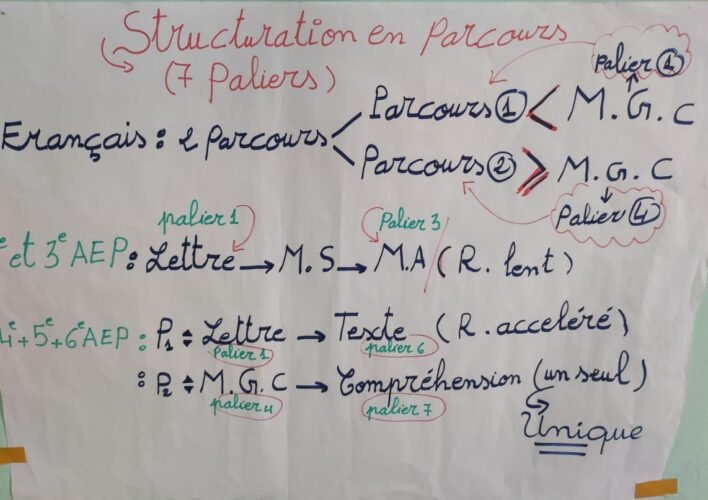 Structuration en Parcours
(7 Paliers)
Palier ①
Parcours ① < M.G.C
Français : 2 Parcours
Parcours ② ≥ M.G.C
Palier ④
palier 1 Palier 3
e et 3e AEP : Lettre → M.S → M.A ( R. lent )
4e+5e+6e AEP : P1 : Lettre → Texte ( R. acceléré )
Palier 1 palier 6
: P2 : M.G.C → Compréhension ( un seul )
palier 4 palier 7
Unique